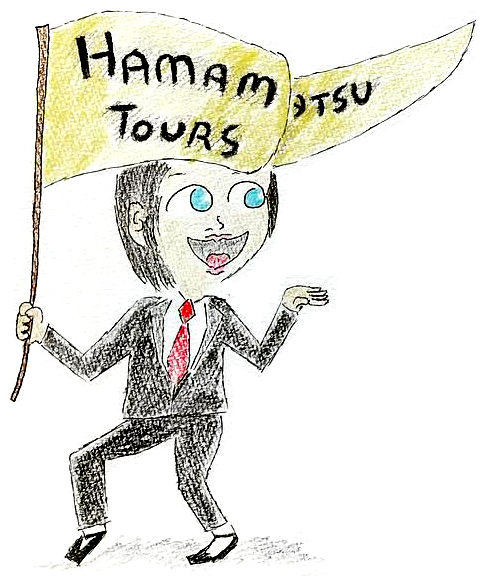 HAMAM TSU
TOURS